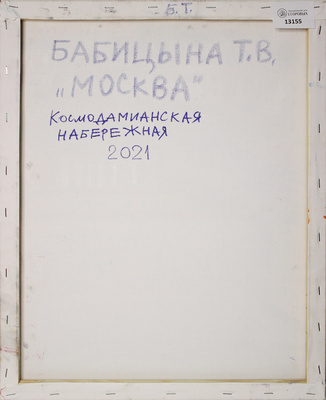 Б.Т.
13155
БАБИЦЫНА Т.В.
„МОСКВА"
КОСМОДАМИАНСКАЯ
НАБЕРЕЖНАЯ
2021